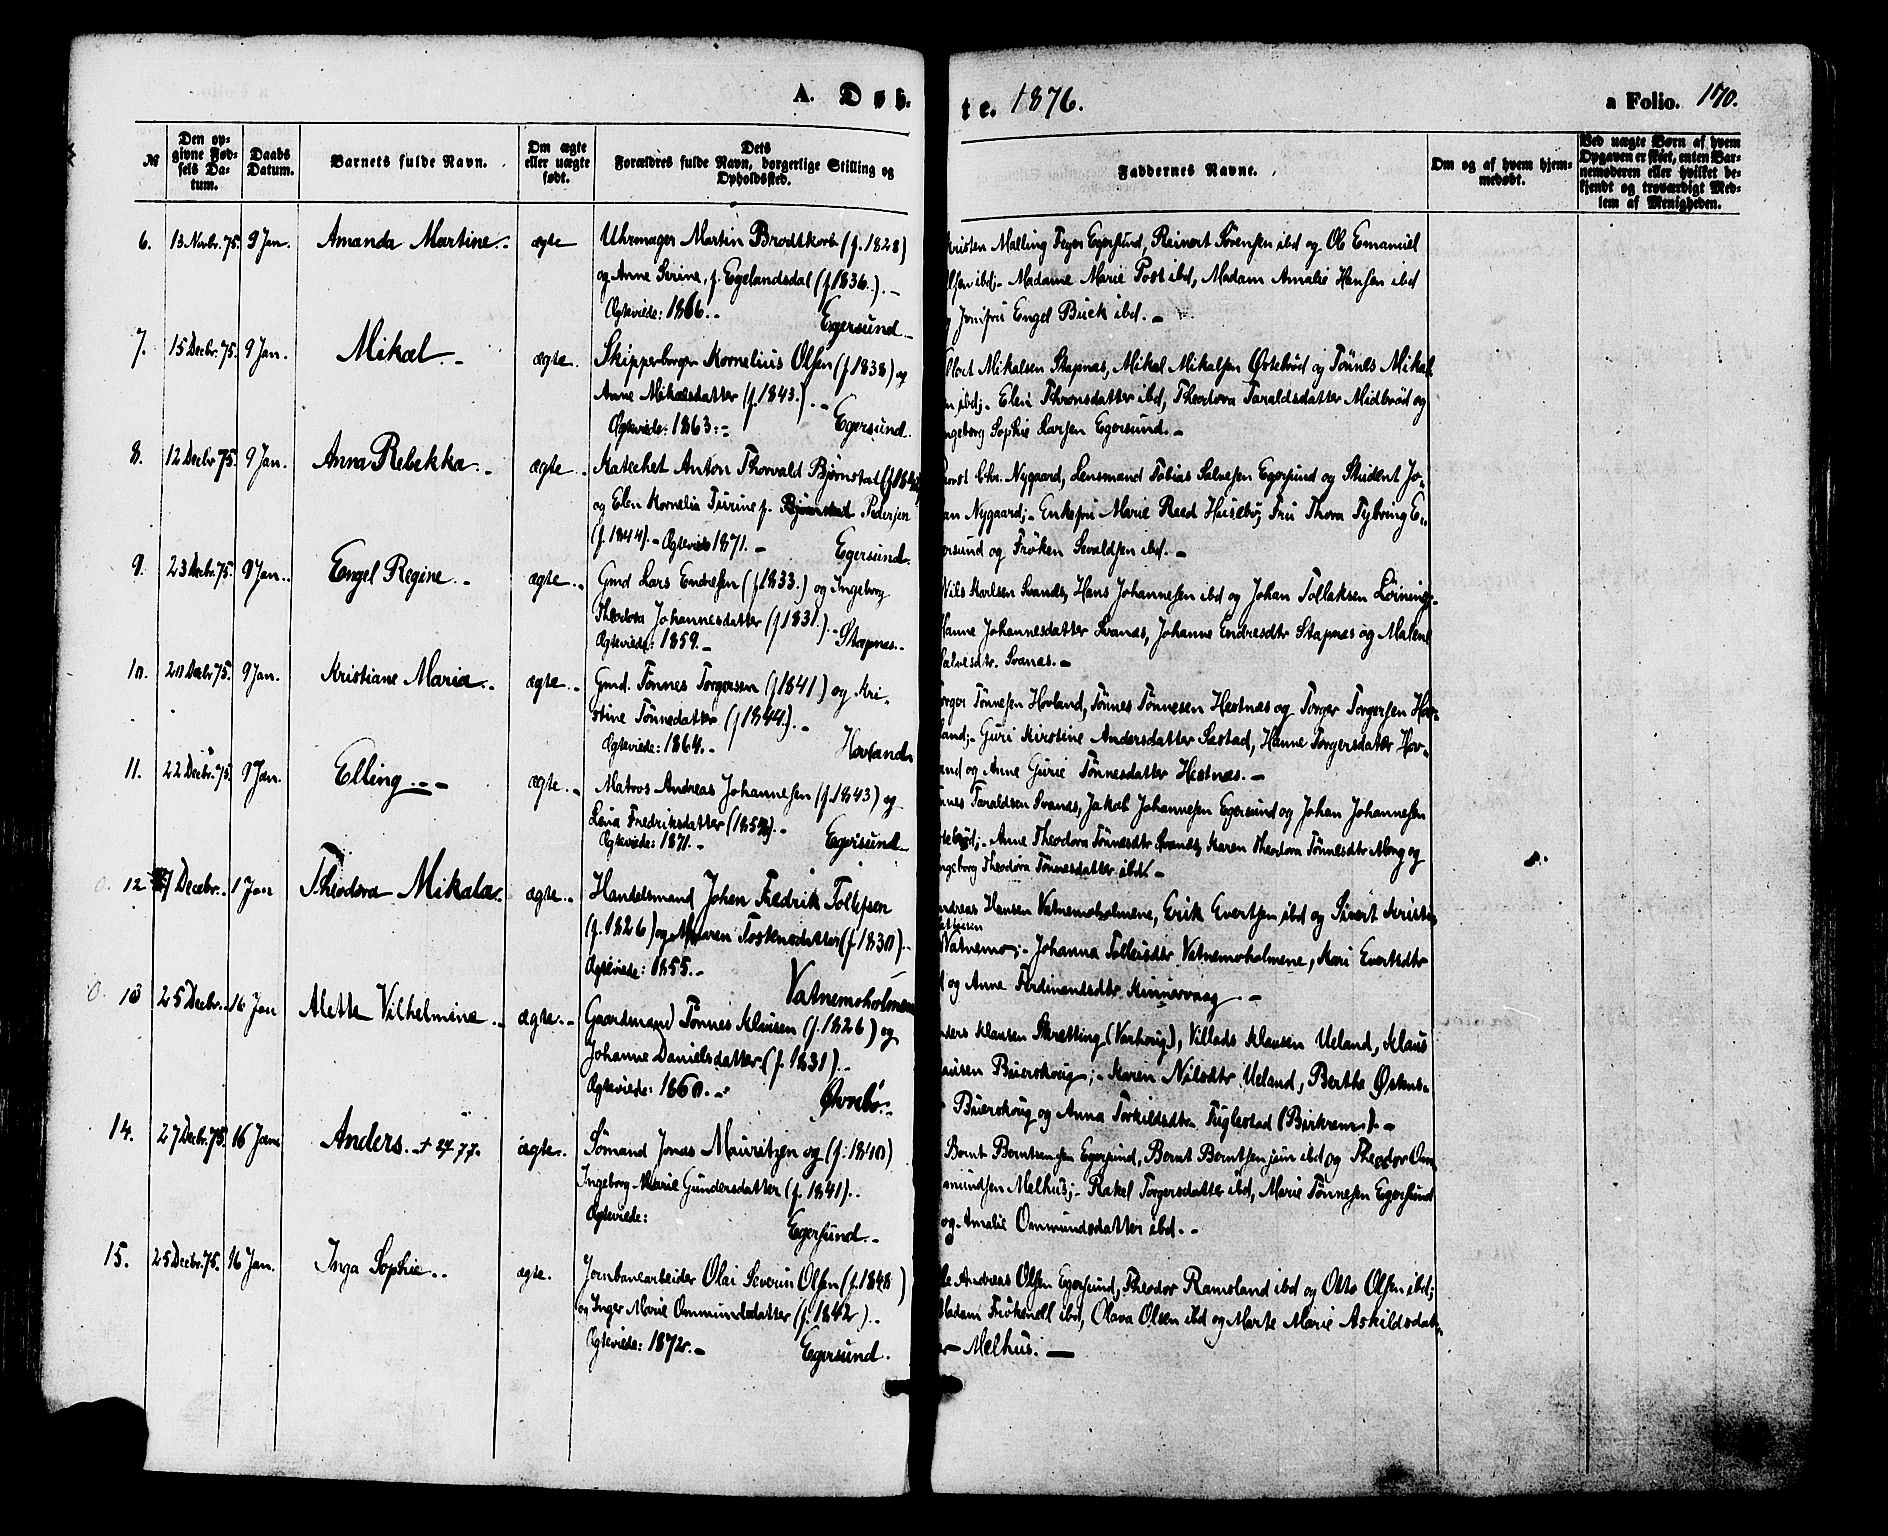 A. Døb-
te. 1876.
a Folio. 170.
№
Den op-
givne Fød-
sels Da-
tum.
Daabs
Datum.
Barnets fulde Navn.
Om ægte
eller uægte
født.
Dets
Forældres fulde Navn, borgerlige Stilling og
Opholdssted.
Faddernes Navne.
Om og af hvem hjem-
medøbt.
Ved uægte Børn af hvem
Opgaven er skeet, enten Bar-
nemoderen eller hvilket be-
kjendt og troværdigt Med-
lem af Menigheden.
6. 13 Novbr. 75. 9 Jan. Amanda Martine.. ægte Uhrmager Martin Brodtkorb (f. 1828)
og Anne Serine, f. Egelandsdal (f. 1836.).-
Ægteviede: 1866.- Egersund.
Kristen Malling Feyer Egersund, Reinert Sörensen ibd og Ol Emanuel
ibd;- Madame Marie Post ibd, Madam Amalie Hansen ibd
Jomfru Engel Buck ibd.-
7. 15 Decbr. 75. 9 Jan. Mikal.- ægte. Skipperborger Kornelius Olsen (f. 1838) og
Anne Mikalsdatter (f. 1843.).-
Ægteviede: 1863:- Egersund.
Mikalsen Stapnæs, Mikal Mikalsen Østebröd og Tönnes Mikal
ibd;- Elen Thronsdatter ibd, Theodora Taraldsdatter Midbröd og
Ingeborg Sophie Larsen Egersund.-
8. 12 Decbr. 75. 9 Jan. Anna Rebekka.. ægte.. Katechet Anton Thorvald Bjørnstad
og Elen Kornelia f. Pedersen
(f. 1844).- Ægteviede 1871.- Egersund.
Chr. Nygaard, Lensmand Tobias Salvesen Egersund og Student Jo-
an Nygaard;- Enkefru Marie Reed Husebø, Fru Thora Tybring E-
ersund og Frøken Sevaldsen ibd.-
9. 23 Decbr. 75. 9 Jan.. Engel Regine.. ægte.. Gmd Lars Endresen (f. 1833.) og Ingeborg
Theodora Johannesdatter (f. 1831.).-
Ægteviede: 1859.- Stapnæs..
Nils Karlsen Svanæs, Hans Johannesen ibd og Johan Tollaksen
Hanne Johannesdatter Svanæs, Johanne Endresdtr Stapnæs og Malene
Salvesdtr. Svanæs.-
10. 20 Decbr 75. 9 Jan. Kristiane Maria.. ægte.. Gmd. Tönnes Torgersen (f 1841.) og Kri-
stine Tönnesdatter (f 1844).-
Ægteviede: 1864.- Hovland.
Torger Tönnesen Hovland, Tönnes Tönnesen Hestnæs og Torger Torgersen Hov-
land;- Guri Kirstine Andersdatter Sæstad, Hanne Torgersdatter Hov-
land og Anne Gurie Tönnesdatter Hestnæs.-
11. 22 Decbr. 75. 9 Jan. Elling.-- ægte.. Matros Andreas Johannesen (f. 1843) og
Lena Fredriksdatter
Ægteviede: 1871.- Egersund.
Taraldsen Svanæs, Jakob Johannesen Egersund og Johan Johannesen
Anne Theodora Tönnesdtr Svanæs, Karen Theodora Tönnesdtr og
Ingeborg Theodora Tönnesdatter ibd.
12 7 Decbr.. 1 Jan Theodora Mikala. ægte.. Handelsmand Johan Fredrik Tollefsen
(f. 1826) og Maren (f. 1830).-
Ægteviede: 1855.- Vatnemoholmene
Andreas Hansen Vatnemoholmene, Erik Evertsen ibd og Sivert
Vatnemo;- Johanna Vatnemoholmene, Kari Evertsdtr
og Anne Ferdinandsdtr. Kinnervaag.-
13 25 Decbr.. 16 Jan Alette Vilhelmine.. ægte.. Gaardmand Tönnes Klausen (f. 1826) og
Johanne Danielsdatter (f. 1831)..
Ægteviede: 1860.- Øvrebø..
Klausen Skretting (Varhoug), Villads Klausen Ueland, Klaus
Buerskoug;- Karen Nilsdtr Ueland, Berthe
Buerskoug og Anna Torkildsdtr Fuglestad (Birkrem).-
14. 27 Decbr. 75. 16 Jan Anders. ægte.. Sömand Jonas Mauritzen og (f. 1840)
Ingeborg Marie Gundersdatter (f. 1841)..
Ægteviede: Egersund..
Bernt Egersund, Bernt Berntsen jun ibd og Theodor Om-
mundsen Melhus;- Rakel Torgersdatter ibd, Marie Tönnesen Egersund
og Amalie Ommundsdatter ibd.-
15. 25 Decbr. 75. 16 Jan. Inga Sophie.. ægte. Jernbanearbeider Olai Severin Olsen (f. 1848)
og Inger Marie Ommundsdatter (f. 1842)..
Ægteviede: 1872.- Egersund.
Andreas Olsen Egersund, Theodor Ramsland ibd og Otto Olsen ibd;
Madam ibd, Olava Olsen ibd og Marte Marie Askildsdat-
Melhus.-